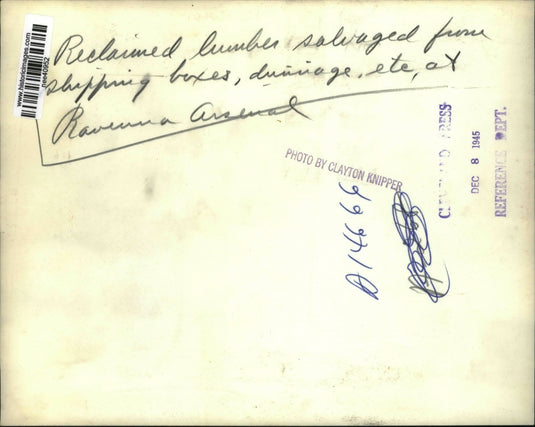 Reclaimed lumber salvaged from
shipping boxes, dunnage, etc, at
Ravenna Arsenal
www.historicimages.com
PHOTO BY CLAYTON KNIPPER
CLEVELAND PRESS
DEC 8 1945
REFERENCE DEPT.
A14666